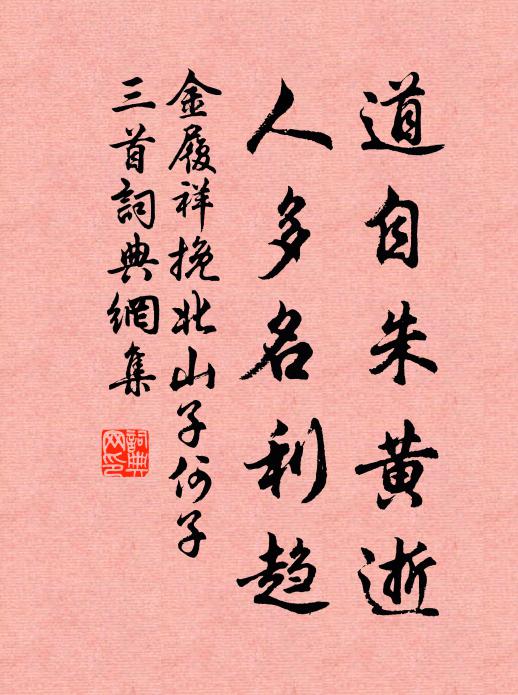 道自朱黄逝
人多名利趋
金履祥挽北山子何子
三首詞典網集
詞典網印